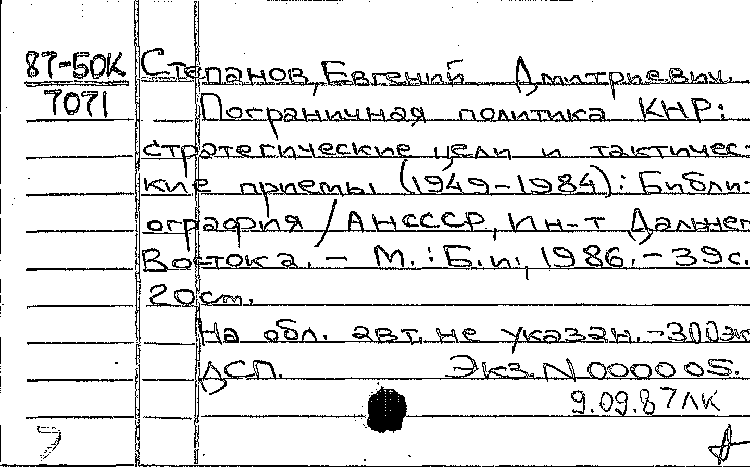 87-50К Степанов, Евгений Дмитриевич.
7071 Пограничная политика КНР:
стратегические цели и тактичес-
кие приемы (1949-1984): Библи-
ография / АН СССР, Ин-т Дальнег
Востока. - М.: Б.и., 1986. - 39с.
20см.
На обл. авт. не указан. - 300эк
ДСП. Экз. N 000005.
9.09.87 ЛК